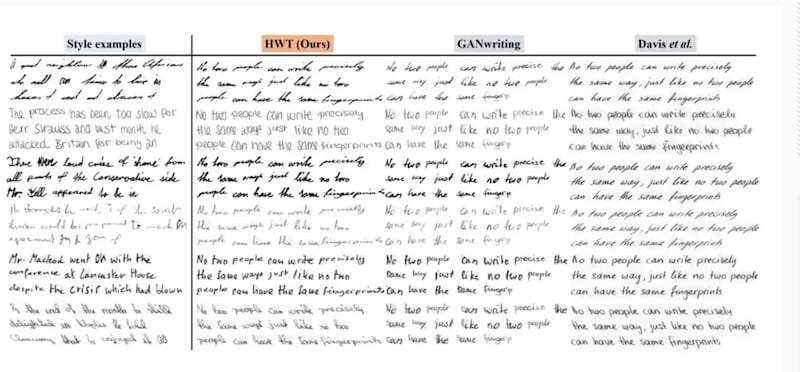 Style examples HWT (Ours) GANwriting Davis et al.
No two people can write precisely No two people can write precise the No two people can write precisely
the same ways just like no two same way just like no two people the same way, just like no two people
people can have the same fingerprints can have the same fingerp can have the same fingerprints
The process has been too slow for No two people can write precisely No two people can write precise the No two people can write precisely
Herr Strauss and last month he the same ways just like no two same way just like no two people the same way, just like no two people
attacked Britain for being an people can have the same fingerprints can have the same fingerp can have the same fingerprints
There were loud cries of 'Shame' from No two people can write precisely No two people can write precise the No two people can write precisely
all parts of the Conservative side the same ways just like no two same way just like no two people the same way, just like no two people
Mr. appeared to be in people can have the same fingerprints can have the same fingerp can have the same fingerprints
No two people can write precisely No two people can write precise the No two people can write precisely
the same ways just like no two same way just like no two people the same way, just like no two people
people can have the same fingerprints can have the same fingerp can have the same fingerprints
Mr. Macleod went on with the No two people can write precisely No two people can write precise the No two people can write precisely
conference at Lancaster House the same ways just like no two same way just like no two people the same way, just like no two people
despite the crisis which had blown people can have the same fingerprints can have the same fingerp can have the same fingerprints
By the end of the month he No two people can write precisely No two people can write precise the No two people can write precisely
the same ways just like no two same way just like no two people the same way, just like no two people
people can have the same fingerprints can have the same fingerp can have the same fingerprints